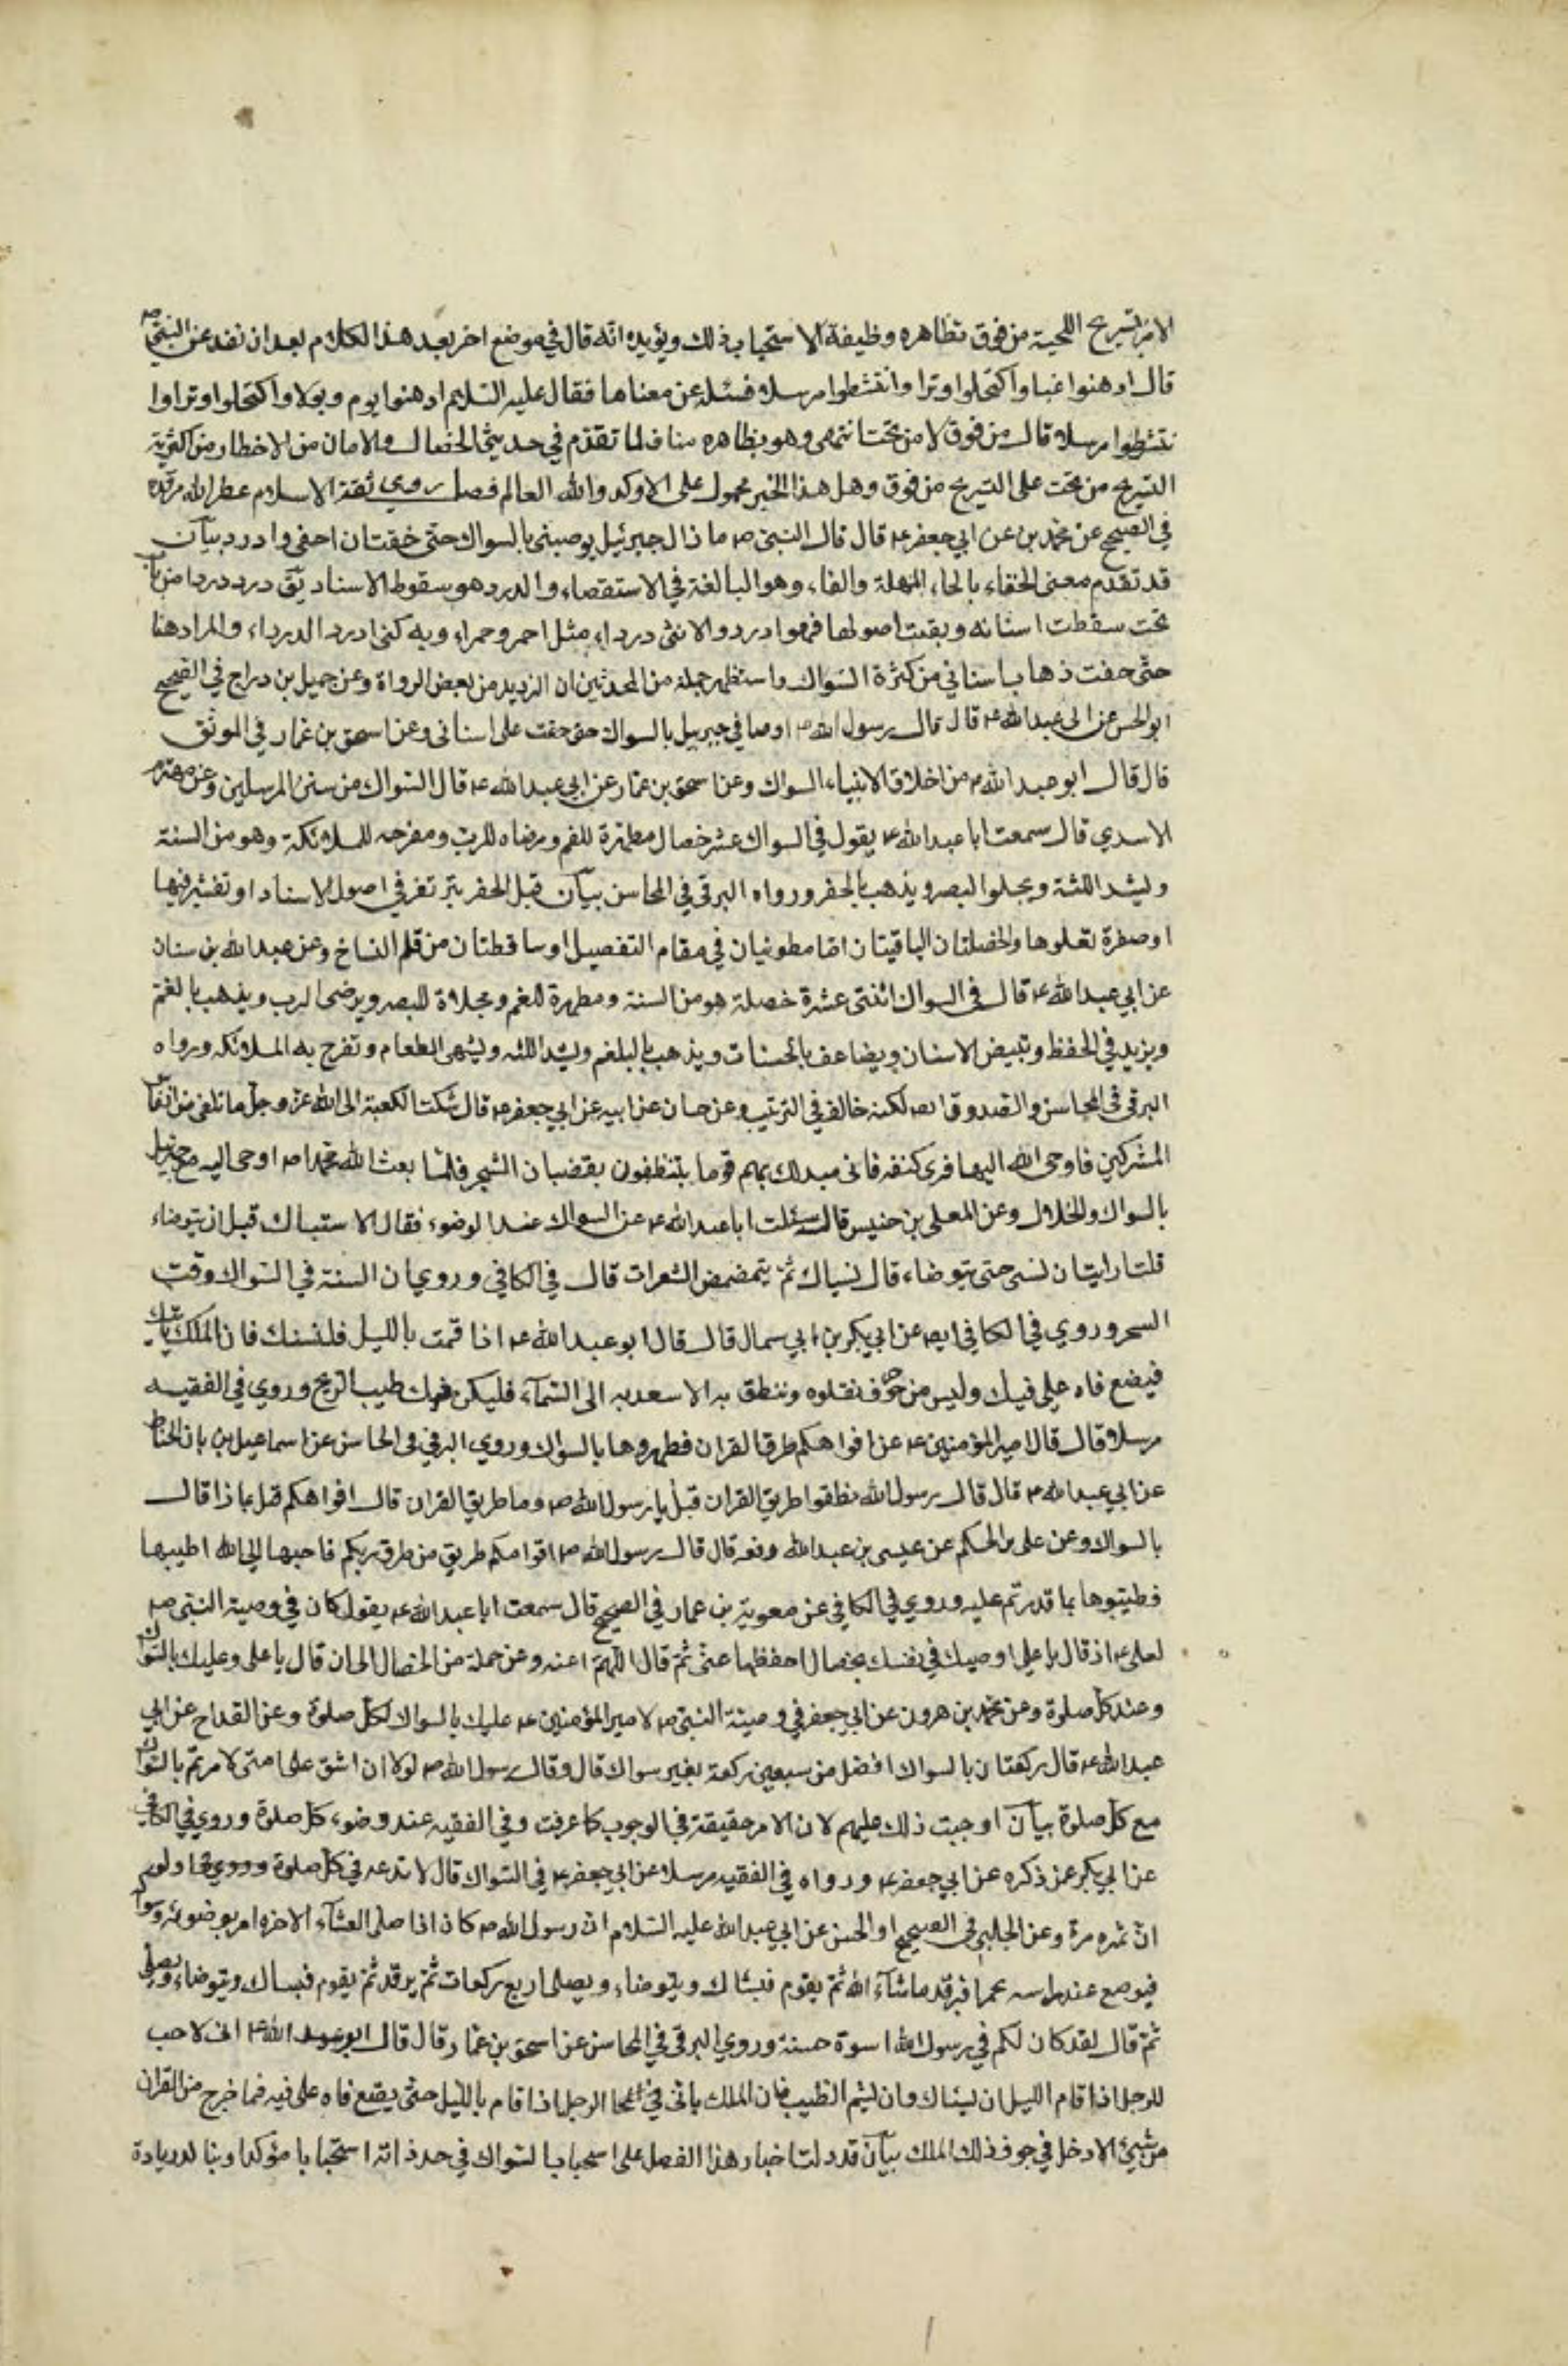 الامر بتسريح اللحية من فوق تظاهره وظيفة الاستحباب ذلك ويؤيده انه قال في موضع اخر بعد هذا الكلام بعد ان نقد عن النبي ص
قال ادهنوا غبا واكتحلوا وترا وانتشطوا مرسلا فسئله عن معناها فقال عليه السلام ادهنوا يوم ويولا واكتحلوا وترا وا
نتشطوا مرسلا قال من فوق لا من تحت انتهى وهو بظاهره مناف لما تقدم في حديثي الخصال والامان من الاخطار من اكثرية
التسريح من تحت على التسريح من فوق وهل هذا الخبر محمول على الاوكد والله العالم فصل روى ثقة الاسلام عطر الله مرقده
في الصحيح عن محمد بن عن ابي جعفر ع قال قال النبي ص ما ذال جبرئيل يوصيني بالسواك حتى خفت ان احفى وادرد بيان
قد تقدم معنى الحفاء بالحاء المهلة والفاء وهو المبالغة في الاستقصاء والدرد هو سقوط الاسناد يق درد دردا من باب
تحت سقطت اسنانه وبقيت اصولها فهو ادرد والانثى درداء مثل احمر وحمراء وبه كنى ادرد الدرداء والمراد هنا
حتى خفت ذهاب اسناني من كثرة السواك واستظهر جملة من المحدثين ان الترديد من بعض الرواة وعن جميل بن دراج في الصحيح
ابو الحسن عن ابى عبد الله ع قال قال رسول الله ص اوصاني جبريل بالسواك حتى خفت على اسنانى وعن اسحق بن عمار في الموثق
قال قال ابو عبد الله ع من اخلاق الانبياء السواك وعن اسحق بن عمار عن ابي عبد الله ع قال السواك من سنن المرسلين وعن مهزم
الاسدي قال سمعت ابا عبد الله ع يقول في السواك عشر خصال مطهرة للفم ومرضاه للرب ومفرحه للملائكة وهو من السنة
ويشد اللثة ويجلو البصر ويذهب بالحفر ورواه البرقي في المحاسن بيان قيل الحفر بثر تفر في اصول الاسناد او تقشر فيها
او صفرة تعلوها والخصلتان الباقيتان اما مطويتان في مقام التفصيل او ساقطتان من قلم النساخ وعن عبد الله بن سنان
عن ابي عبد الله ع قال في السواك اثنتى عشرة خصلة هو من السنة ومطهرة للفم ومجلاة للبصر ويرضى الرب ويذهب بالغمة
ويزيد في الحفظ وتبيض الاسنان ويضاعف بالحسنات ويذهب بالبلغم ويشد اللثه ويشهى الطعام وتفرح به الملائكه ورواه
البرقي في المحاسن والصدوق ايض لكنه خالف في الترتيب وعن حسان عن ابيه عن ابي جعفر ع قال شكت الكعبة الى الله عز وجل ما تلقى من انفاس
المشركين فاوحى الله اليها قرى كنفه فانى مبدلك بهم قوما يتنظفون بقضبان الشجر فلما بعث الله محمدا ص اوحى اليه مع جبرئيل
بالسواك والخلال وعن المعلى بن خنيس قال سئلت ابا عبد الله ع عن السواك عند الوضوء فقال الاستياك قبل ان يتوضاء
قلت ارايت ان نسى حتى يتوضاء قال يستاك ثم يتمضمض الثعرات قال في الكافي وروي ان السنة في السواك وقت
السحر وروي في الكافي ايض عن ابي بكر بن ابي سمال قال قال ابو عبد الله ع اذا قمت بالليل فلتستك فان الملك ياتيك
فيضع فاه على فيك وليس من حرف تقلوه وننطق به الا سعد به الى السماء فليكن فمك طيب الريح وروي في الفقيه
مرسلا قال قال امير المؤمنين ع عن افواهكم طرق القران فطهروها بالسواك وروي البرقي في المحاسن عن اسماعيل بن بان الحناط
عن ابي عبد الله ع قال قال رسول الله نظفوا طريق القران قيل يا رسول الله ص وما طريق القران قال افواهكم قيل بماذا قال
بالسواك وعن على بن الحكم عن عيسى بن عبد الله رفعه قال قال رسول الله ص افواهكم طريق من طرق ربكم فاحبها الى الله اطيبها
فطيبوها بما قدرتم عليه وروي في الكافي عن معوية بن عمار في الصحيح قال سمعت ابا عبد الله ع يقول كان في وصية النبي ص
لعلى ع اذ قال يا علي اوصيك في نفسك بخصال احفظها عنى ثم قال اللهم اعنه وعن جملة من الخصال الى ان قال يا على وعليك بالسواك
وعند كل صلوة وعن محمد بن هرون عن ابي جعفر في وصية النبي ص لامير المؤمنين ع عليك بالسواك لكل صلوة وعن القداح عن ابي
عبد الله ع قال ركعتان بالسواك افضل من سبعين ركعة بغير سواك قال وقال رسول الله ص لولا ان اشق على امتى لامرتم بالسواك
مع كل صلوة بيان اوجبت ذلك عليهم لان الامر حقيقة في الوجوب كما عرفت وفي الفقيه عند وضوء كل صلوة وروي في الكافي
عن ابي بكر عمن ذكره عن ابي جعفر ع ورواه في الفقيه مرسلا عن ابي جعفر ع في السواك قال لا تدعه في كل صلوة ولو
ان تمره مرة وعن الحلبي في الصحيح او الحسن عن ابي عبد الله عليه السلام ان رسول الله ص كان اذا صلى العشاء الاخره امر بوضوئه وسواكه
فيوضع عند راسه مخمرا فيرقد ما شاء الله ثم يقوم فيستاك ويتوضاء ويصلى اربع ركعات ثم يرقد ثم يقوم فيستاك ويتوضاء ويصلى
ثم قال لقد كان لكم في رسول الله اسوة حسنة وروي البرقي في المحاسن عن اسحق بن عمار قال قال ابو عبد الله ع انى لاحب
للرجل اذا قام الليل ان يستاك وان يشم الطيب فان الملك ياتى الرجل اذا قام بالليل حتى يضع فاه على فيه فما خرج من القران
من شيئ الا دخل في جوف ذلك الملك بيان قد دلت اخبار هذا الفصل على استحباب السواك في حد ذاته استحبابا مؤكدا وبنا لدريادة